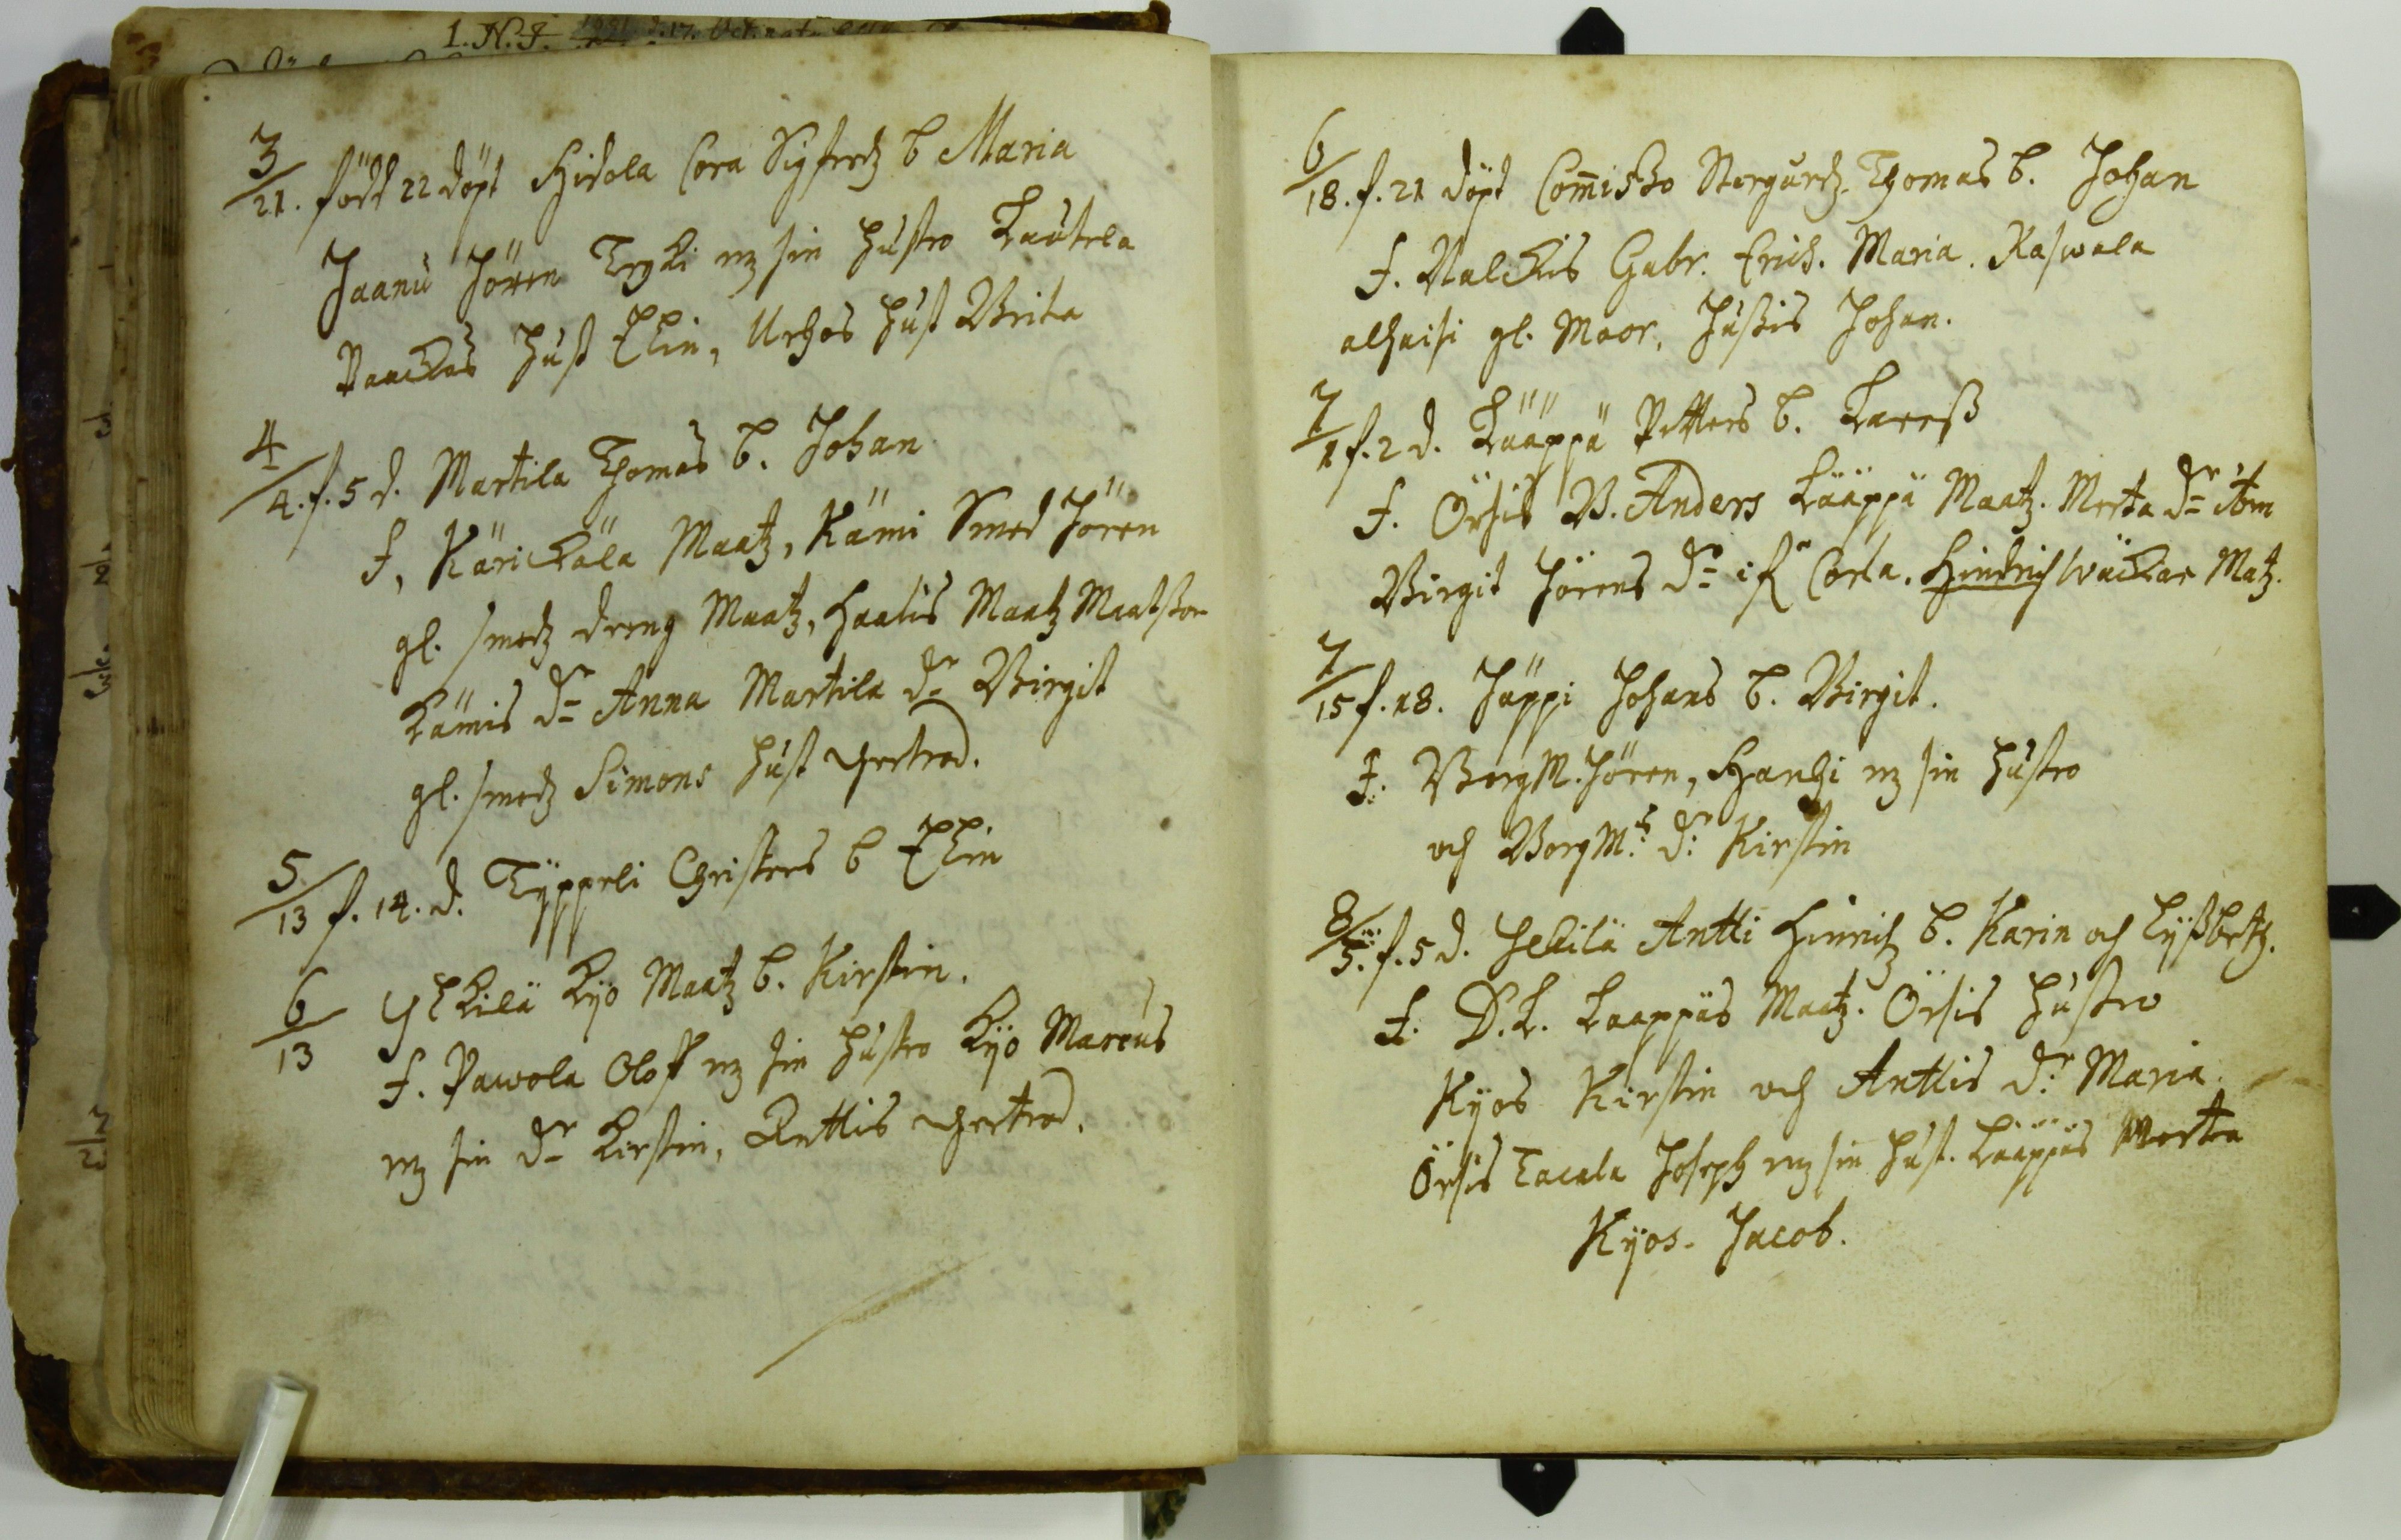 1. N. J.
3/21. född 22 döpt Hidola Cora Sigfredz b Maria
Jaanu Jören Erki mz sin hustro Kautela
Paackas hust Elin, Urhos hust Brita
4/4. f. 5 d. Martila Thomas b. Johan
f, Käri Kala Maatz, Kämi Smed Jören
gl. smedz dreng Maatz, Haalis Maatz Maatsson
Kämis dr Anna Martila dr Birgit
gl. smedz Simons hust Chertrod.
5/13 f. 14. d. Tÿppeli Christers b Elin
6/13 Ylkilä Kÿö Maatz b. Kirstin.
f. Pawola Oloff mz sin hustro Kÿö Marcus
mz sin dr Kirstin, Anttis Chertrod.
6/18. f. 21 döpt Thomas b. Johan
f. Gabr. Erich. Maria.
gl. Moor, Jussis Johan.
7/1 f. 2 d. Kääppä Petters b. Kareß
f. Örsis B. Anders Kääppä Maatz. Merta dr
Birgit Jörens dr Corla. Hindrich Wäckar Matz.
7/15 f. 18. Jäppi Johans b. Birgit.
f. BorgM. Jören, Hanhi mz sin hustro
och BorgM:s dr Kirstin
8/5. f. 5 d. Jekilä Antti Hinrich b. Karin och Lÿßbetz.
f. D. K. Kaappäs Maatz. Örsis hustro
Kÿös Kirstin och Anttis dr Maria
Örsis Tacala Joseph mz sin hust. Kääppäs Merta
Kÿös. Jacob.